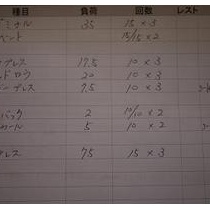 種目 負荷 回数 レスト
35 15 × 3
15/15 × 2
プレス 17.5 10 × 3
ドロウ 20 10 × 3
プレス 7.5 10 × 3
バック 2 10/10 × 2
カール 5 10 × 2
プレス 75 15 × 3